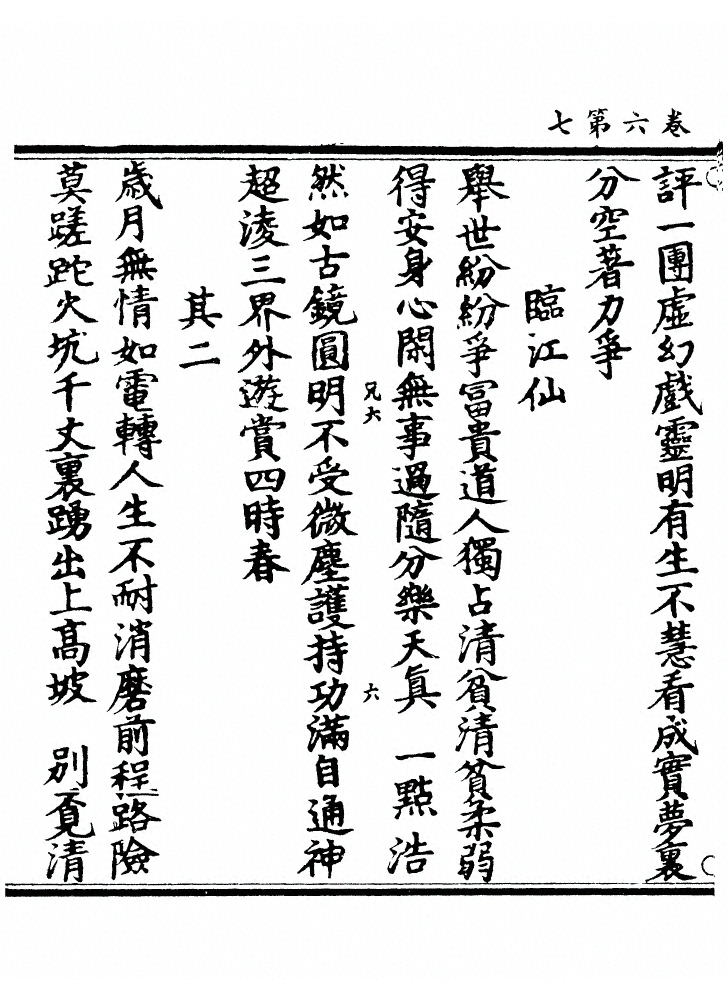 卷六第七
評一團虛幻戲靈明有生不慧看成實夢裏
分空著力爭
臨江仙
舉世紛紛爭冨貴道人獨占清貧清貧柔弱
得安身心閑無事過隨分樂天真　一點浩
兄六
六
然如古鏡圓明不受微塵護持功滿自通神
超淩三界外遊賞四時春
其二
歲月無情如電轉人生不耐消磨前程路險
莫蹉跎火坑千丈裏踴出上高坡　別覔清